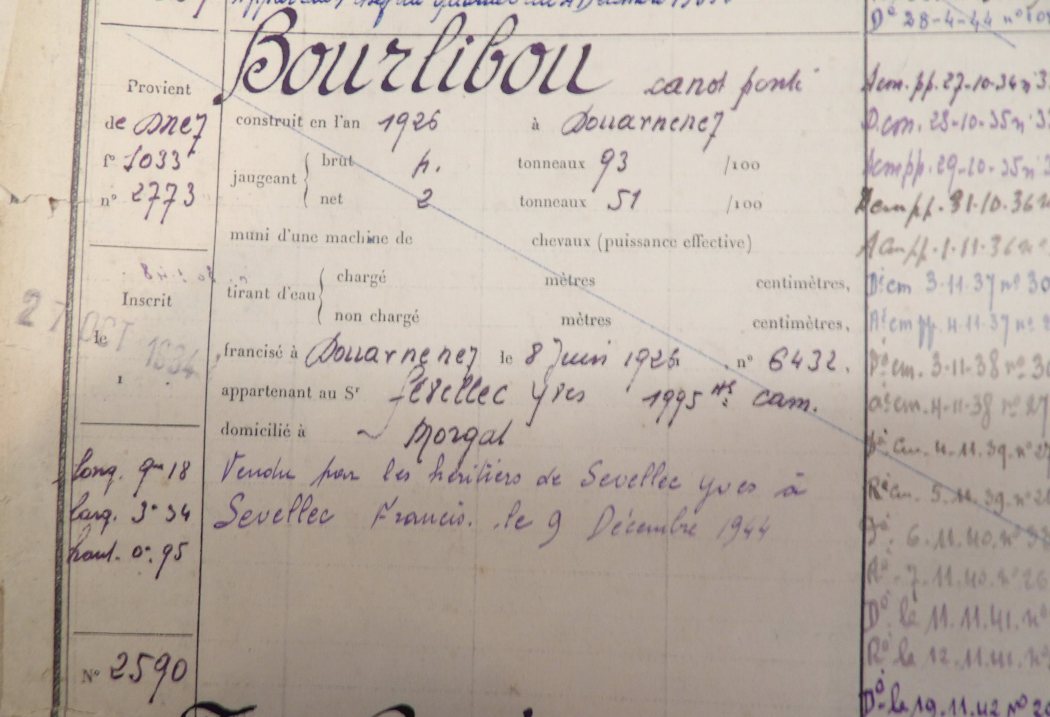 Bourlibou canot ponté
Provient
de Dnez
f° 1033
n° 2773
construit en l'an 1926 à Douarnenez
jaugeant { brut 4. tonneaux 93 /100
net 2 tonneaux 51 /100
muni d'une machine de chevaux (puissance effective)
tirant d'eau { chargé mètres centimètres,
non chargé mètres centimètres,
Inscrit
27 OCT 1934
le
francisé à Douarnenez le 8 Juin 1926 n° 6432.
appartenant au Sr Sévellec Yves 1995 cam.
domicilié à Morgat
Vendu par les héritiers de Sevellec Yves à
Sevellec Francis. le 9 Décembre 1944
long. 9m 18
larg. 3m 34
haut. 0m. 95
N° 2590
D° 28-4-44 n°
Acm. pp. 27-10-34 n° 3
D.cm. 28-10-35 n° 3
Acm pp. 29-10-35 n° 3
Dcm pp. 31-10-36 n
Acm pp. 1-11-36 n°
D°cm 3-11-37 n° 30
A°cm pp. 4-11-37 n° 2
D°cm. 3-11-38 n° 30
a°cm. 4-11-38 n° 27
D°cm. 4.11.39. n° 27
R°cm. 5.11.39. n° 2
D°. 6.11.40. n° 38
R°. 7.11.40. n° 26
D° le 11.11.41. n°
R° le 12.11.41. n°
D° le 19.11.42 n° 2